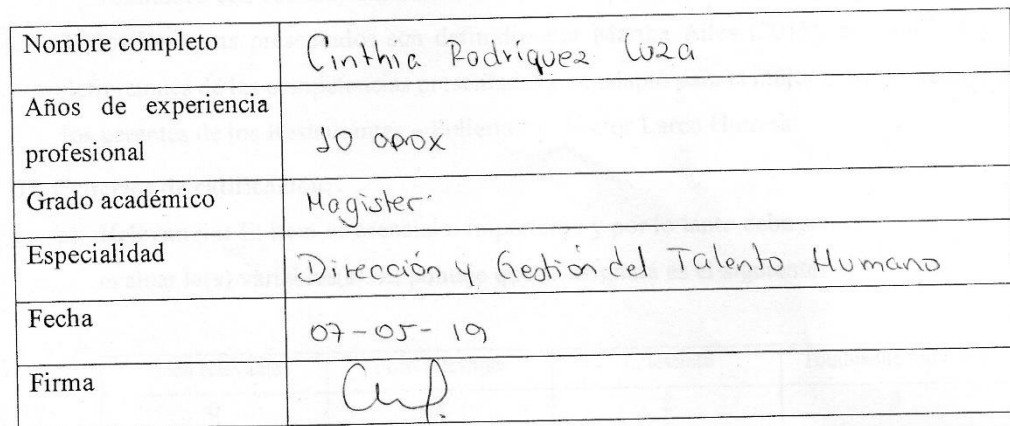 Nombre completo Cinthia Rodríguez Cuza
Años de experiencia
profesional 10 aprox
Grado académico Magister
Especialidad Dirección y Gestión del Talento Humano
Fecha 07-05-19
Firma